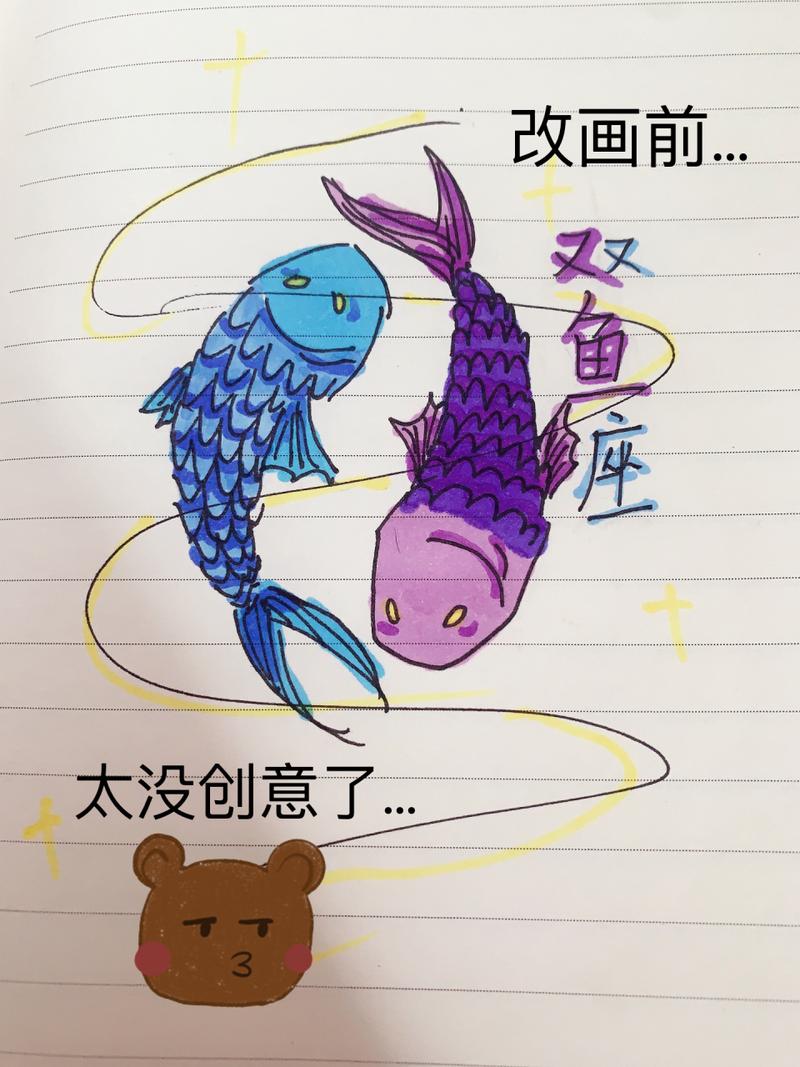 改画前...
双
鱼
座
太没创意了...